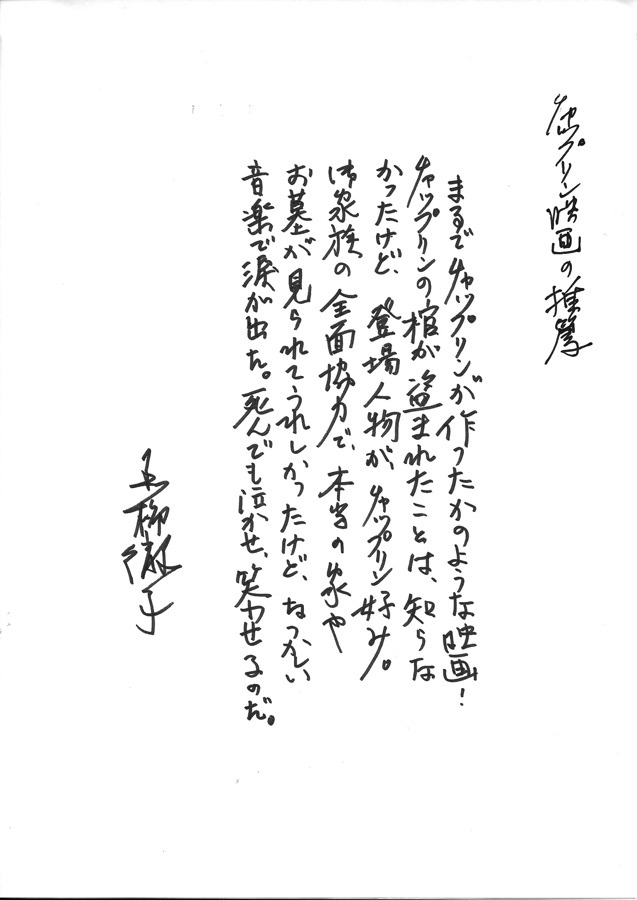 チャップリン映画の推薦
まるでチャップリンが作ったかのような映画！
チャップリンの棺が盗まれたことは、知らな
かったけど、登場人物が、チャップリン好み。
御家族の全面協力で、本当の家や
お墓が見られてうれしかったけど、なつかしい
音楽で涙が出た。死んでも泣かせ、笑わせるのだ。
黒柳徹子